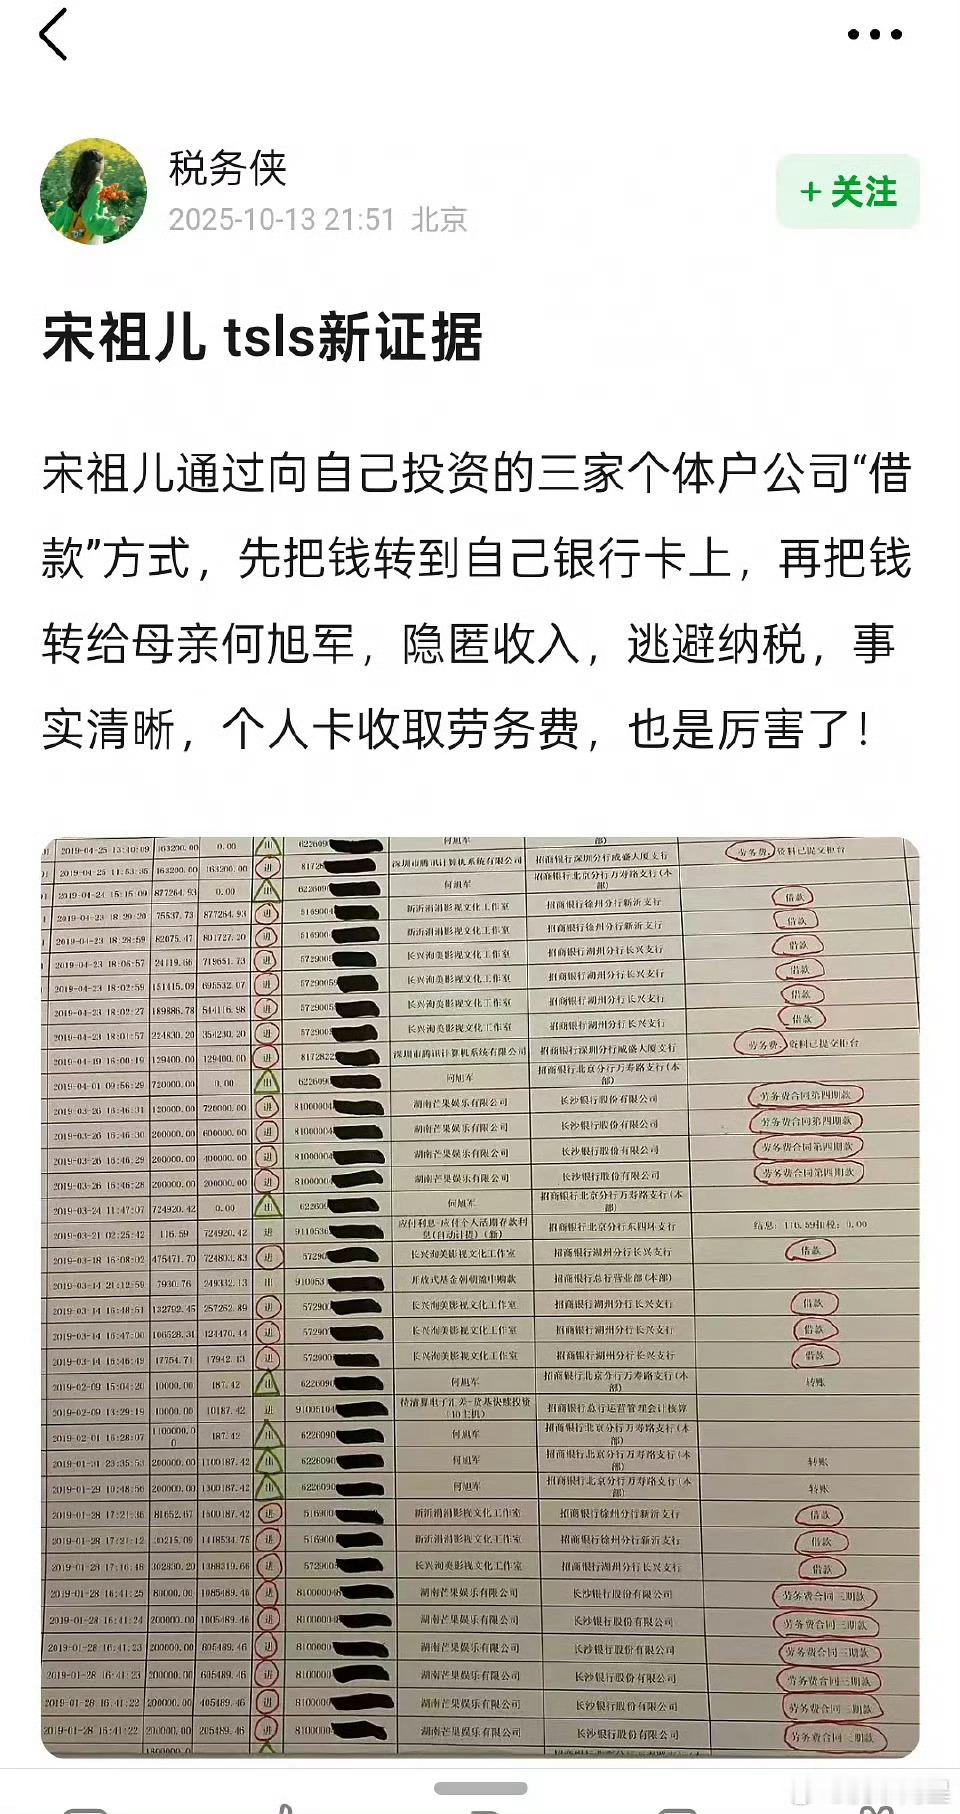 税务侠
2025-10-13 21:51 北京
+ 关注
宋祖儿 tsls新证据
宋祖儿通过向自己投资的三家个体户公司“借
款”方式，先把钱转到自己银行卡上，再把钱
转给母亲何旭军，隐匿收入，逃避纳税，事
实清晰，个人卡收取劳务费，也是厉害了！
2019-04-25 13:40:09 163200.00 0.00 出 622609 何旭军 劳务费,资料已提交柜台
2019-04-25 11:53:35 163200.00 163200.00 进 深圳市腾讯计算机系统有限公司 招商银行深圳分行威盛大厦支行
2019-04-24 15:15:09 877264.93 0.00 出 何旭军 招商银行北京分行万寿路支行(本部)
2019-04-23 18:29:20 75537.73 877264.93 进 招商银行徐州分行新沂支行 借款
2019-04-23 18:28:59 82075.47 801727.20 进 招商银行徐州分行新沂支行 借款
2019-04-23 18:06:57 24119.66 719651.73 进 长兴洵美影视文化工作室 招商银行湖州分行长兴支行 借款
2019-04-23 18:02:59 151415.09 695532.07 进 长兴洵美影视文化工作室 招商银行湖州分行长兴支行 借款
2019-04-23 18:02:27 189886.78 544116.98 进 长兴洵美影视文化工作室 招商银行湖州分行长兴支行 借款
2019-04-23 18:01:57 224830.20 354230.20 进 长兴洵美影视文化工作室 招商银行湖州分行长兴支行 借款
2019-04-19 16:00:19 129400.00 129400.00 进 深圳市腾讯计算机系统有限公司 招商银行深圳分行威盛大厦支行 劳务费,资料已提交柜台
2019-04-01 09:56:29 720000.00 0.00 出 何旭军 招商银行北京分行万寿路支行(本部)
2019-03-26 16:46:31 120000.00 720000.00 进 湖南芒果娱乐有限公司 长沙银行股份有限公司 劳务费合同第四期款
2019-03-26 16:46:30 200000.00 600000.00 进 湖南芒果娱乐有限公司 长沙银行股份有限公司 劳务费合同第四期款
2019-03-26 16:46:29 200000.00 400000.00 进 湖南芒果娱乐有限公司 长沙银行股份有限公司 劳务费合同第四期款
2019-03-26 16:46:28 200000.00 200000.00 进 湖南芒果娱乐有限公司 长沙银行股份有限公司 劳务费合同第四期款
2019-03-24 11:47:07 724920.42 0.00 出 何旭军 招商银行北京分行万寿路支行(本部)
2019-03-21 02:25:42 116.59 724920.42 进 应付利息-应付个人活期存款利息(自动计提)(新) 招商银行北京分行东四环支行 结息: 116.59扣税: 0.00
2019-03-18 16:08:02 475471.70 724803.83 进 长兴洵美影视文化工作室 招商银行湖州分行长兴支行 借款
2019-03-14 21:12:59 7930.76 249332.13 出 开放式基金朝朝盈申购款 招商银行总行营业部(本部)
2019-03-14 16:48:51 132792.45 257262.89 进 长兴洵美影视文化工作室 招商银行湖州分行长兴支行 借款
2019-03-14 16:47:00 106528.31 124470.44 进 长兴洵美影视文化工作室 招商银行湖州分行长兴支行 借款
2019-03-14 16:46:49 17754.71 17942.13 进 长兴洵美影视文化工作室 招商银行湖州分行长兴支行 借款
2019-02-09 15:04:20 10000.00 187.42 出 何旭军 招商银行北京分行万寿路支行(本部) 转账
2019-02-09 13:29:19 10000.00 10187.42 进 招商银行总行运营管理会计核算
2019-02-01 16:28:07 1100000.00 187.42 出 何旭军 招商银行北京分行万寿路支行(本部)
2019-01-31 23:35:53 200000.00 1100187.42 出 何旭军 招商银行北京分行万寿路支行(本部) 转账
2019-01-29 10:48:56 200000.00 1300187.42 出 何旭军 招商银行北京分行万寿路支行(本部) 转账
2019-01-28 17:21:36 81652.67 1500187.42 进 招商银行徐州分行新沂支行 借款
2019-01-28 17:21:12 1418534.75 进 招商银行徐州分行新沂支行 借款
2019-01-28 17:16:48 302830.20 1388319.66 进 长兴洵美影视文化工作室 招商银行湖州分行长兴支行 借款
2019-01-28 16:41:25 80000.00 1085489.46 进 湖南芒果娱乐有限公司 长沙银行股份有限公司 劳务费合同三期款
2019-01-28 16:41:24 200000.00 1005489.46 进 湖南芒果娱乐有限公司 长沙银行股份有限公司 劳务费合同三期款
2019-01-28 16:41:23 200000.00 805489.46 进 湖南芒果娱乐有限公司 长沙银行股份有限公司 劳务费合同三期款
2019-01-28 16:41:23 200000.00 605489.46 进 湖南芒果娱乐有限公司 长沙银行股份有限公司 劳务费合同三期款
2019-01-28 16:41:22 200000.00 405489.46 进 湖南芒果娱乐有限公司 长沙银行股份有限公司 劳务费合同三期款
2019-01-28 16:41:22 200000.00 205489.46 进 湖南芒果娱乐有限公司 长沙银行股份有限公司 劳务费合同三期款